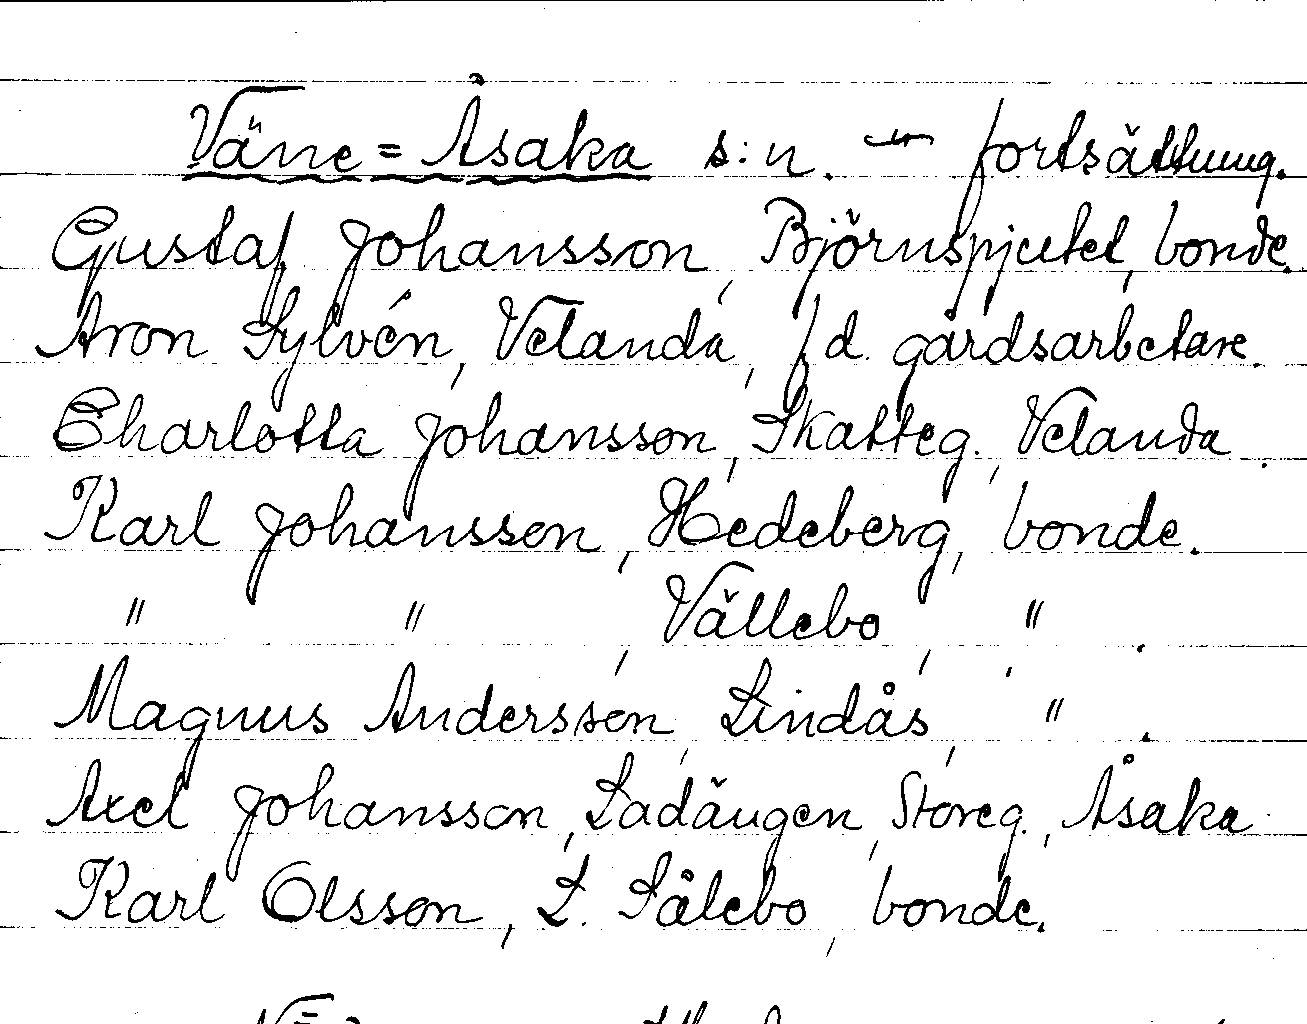 Väne=Åsaka s:n. — fortsättning.
Gustaf Johansson, Björnspjutet, bonde.
Aron Sylvén, Velanda, f.d. gårdsarbetare.
Charlotta Johansson, Skatteg., Velanda.
Karl Johansson, Hedeberg, bonde.
" ", Vällebo, ".
Magnus Andersson, Lindås, ".
Axel Johansson, Ladängen, Storeg., Åsaka.
Karl Olsson, L. Sålebo, bonde.